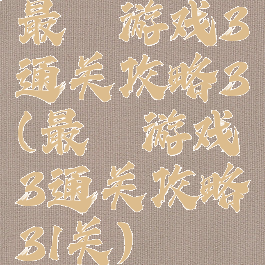 最 游戏3
通关攻略3
(最 游戏
3通关攻略
31关)